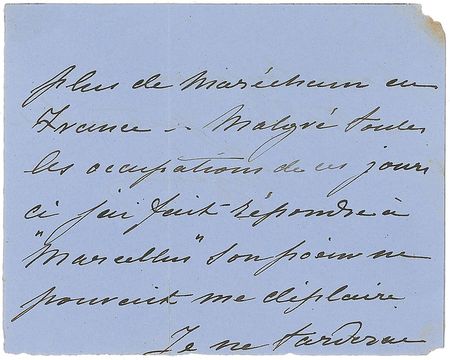 plus de Maréchaux en
France -. Malgré toutes
les occupations de ces jours
ci j'ai fait répondre à
"Marcellus" Son poème ne
pouvait me déplaire
Je ne tarderai